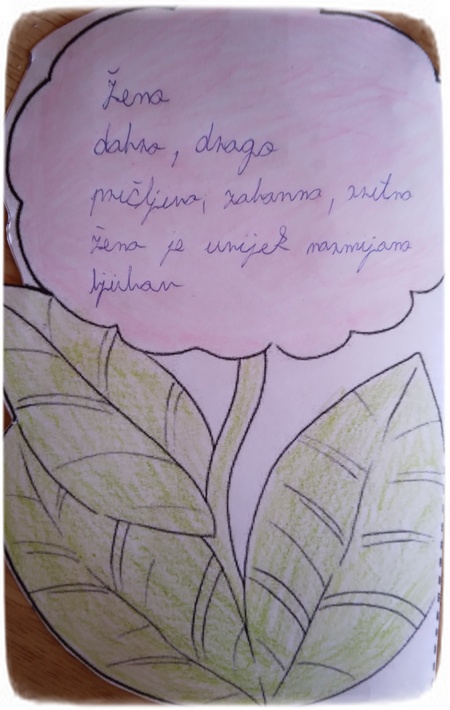 Žena
dobra, draga
pričljiva, zabavna, sretna
Žena je uvijek nasmijana
ljubav